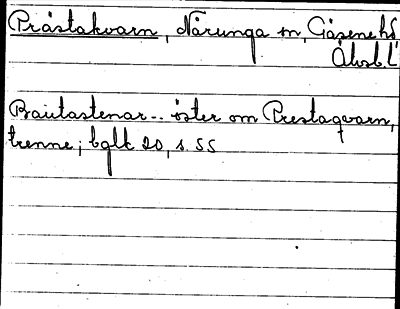 Prästakvarn, Nårunga sn, Gäsene hd,
Älvsb. l.
Bautastenar.. öster om Prestaqvarn,
trenne; bglk 20, s. 55